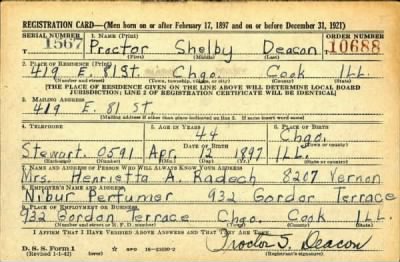 REGISTRATION CARD—(Men born on or after February 17, 1897 and on or before December 31, 1921)
SERIAL NUMBER 1. NAME (Print) ORDER NUMBER
1567 Proctor Shelby Deacon 10688
(First) (Middle) (Last)
2. PLACE OF RESIDENCE (Print)
419 E. 81 St. Chgo. Cook ILL.
(Number and street) (Town, township, village, or city) (County) (State)
[THE PLACE OF RESIDENCE GIVEN ON THE LINE ABOVE WILL DETERMINE LOCAL BOARD
JURISDICTION; LINE 2 OF REGISTRATION CERTIFICATE WILL BE IDENTICAL]
3. MAILING ADDRESS
419 E. 81 ST.
[Mailing address if other than place indicated on line 2. If same insert word same]
4. TELEPHONE 5. AGE IN YEARS 6. PLACE OF BIRTH
44 Chgo.
DATE OF BIRTH (Town or county)
Stewart 0591 Apr. 12 1897 ILL.
(Exchange) (Number) (Mo.) (Day) (Yr.) (State or country)
7. NAME AND ADDRESS OF PERSON WHO WILL ALWAYS KNOW YOUR ADDRESS
Mrs. Henrietta A. Radech 8207 Vernon
8. EMPLOYER'S NAME AND ADDRESS
Nibur Perfumer 932 Gordon Terrace
9. PLACE OF EMPLOYMENT OR BUSINESS
932 Gordon Terrace Chgo. Cook ILL.
(Number and street or R. F. D. number) (Town) (County) (State)
I AFFIRM THAT I HAVE VERIFIED ABOVE ANSWERS AND THAT THEY ARE TRUE.
D. S. S. Form 1
(Revised 1-1-42) GPO 16—21630-2 Proctor S. Deacon
(Registrant's signature)